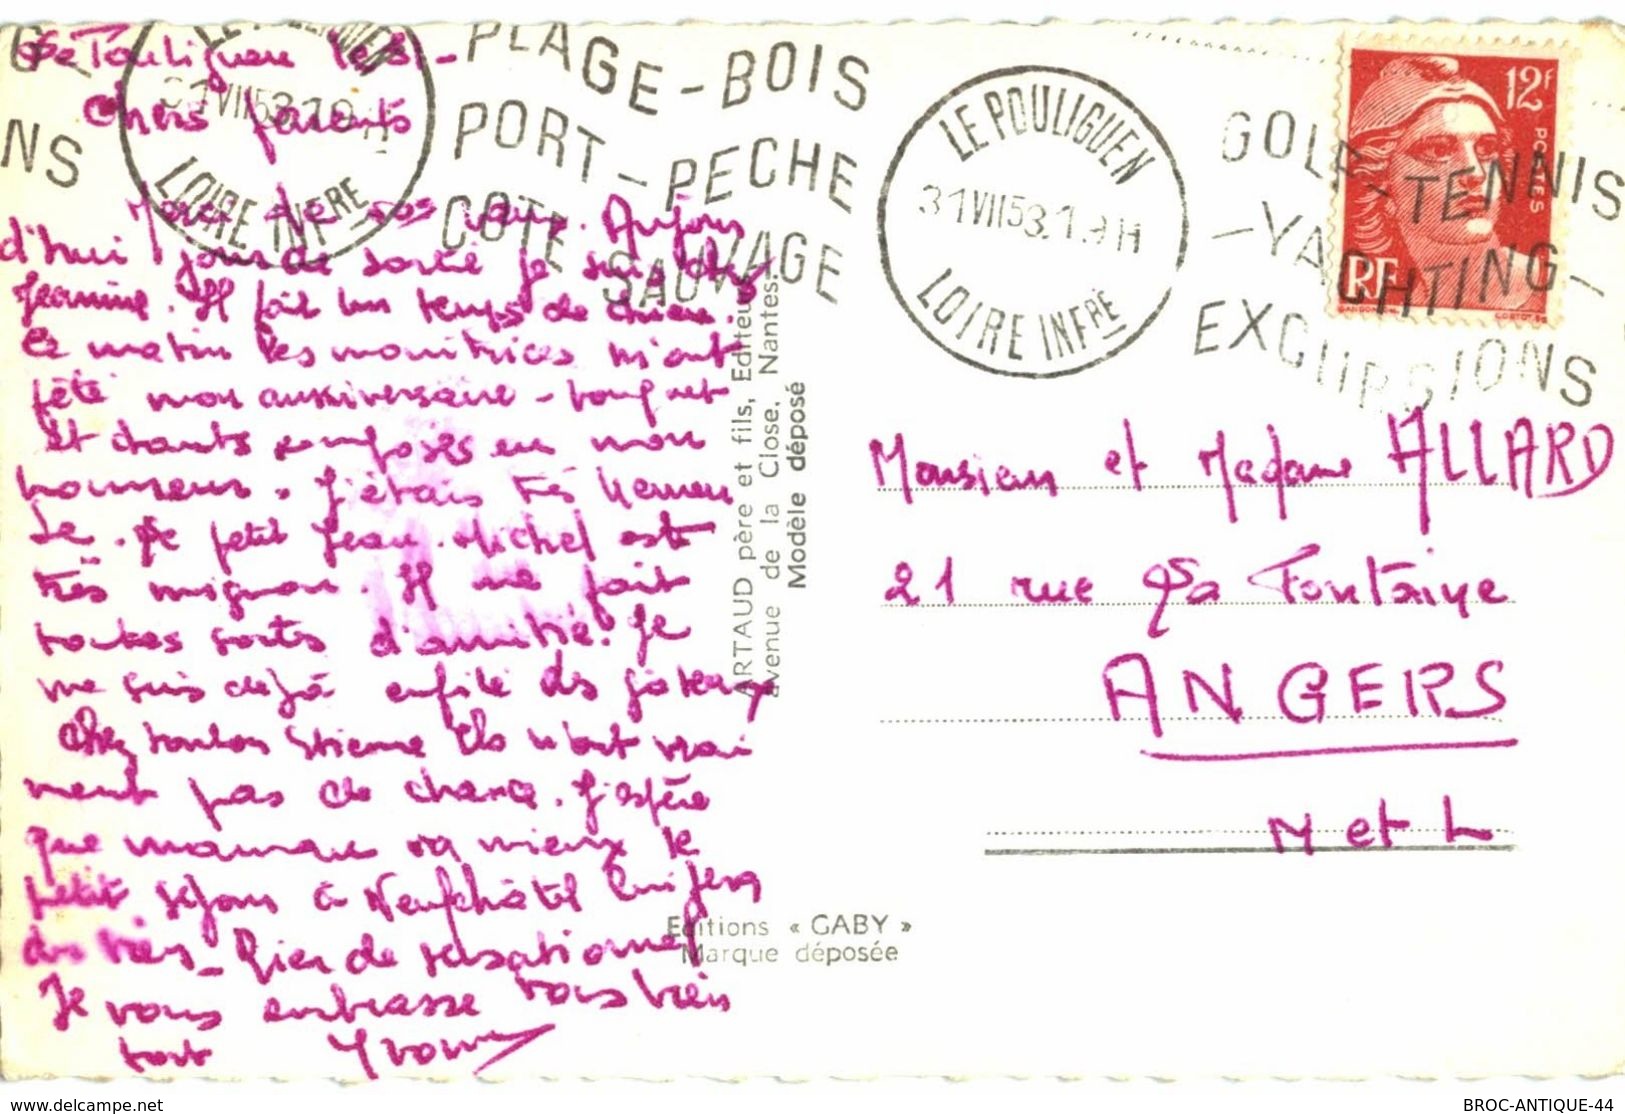 Le Pouliguen le 31 -
Chers parents
Merci de vos vœux. Aujour
d'hui jour de sortie je suis chez
Jeanine. Il fait un temps de chien.
Ce matin les monitrices m'ont
fêté mon anniversaire - bouquet
et chants composés en mon
honneur. J'étais très heureu
se. Le petit Jean-Michel est
très mignon. Il me fait
toutes sortes d'amitié. Je
me suis déjà enfilé des gateaux
Chez tonton Etienne ils n'ont vrai
ment pas de chance. J'espère
que maman va mieux le
petit séjour à Neufchâtel lui fera
du bien - Rien de sensationnel
Je vous embrasse tous bien
fort Yvonne
LE POULIGUEN
31 VII 53 . 19 H
LOIRE INFRE
NS
PLAGE - BOIS
PORT - PECHE
COTE SAUVAGE
LE POULIGUEN
31 VII 53. 19 H
LOIRE INFRE
GOLF - TENNIS
- YACHTING -
EXCURSIONS
12F
POSTES
RF
GANDON DEL.
ARTAUD père et fils, Editeurs
avenue de la Close, Nantes.
Modèle déposé
Editions « GABY »
Marque déposée
Monsieur et Madame ALLARD
21 rue La Fontaine
ANGERS
M et L
www.delcampe.net
BROC-ANTIQUE-44